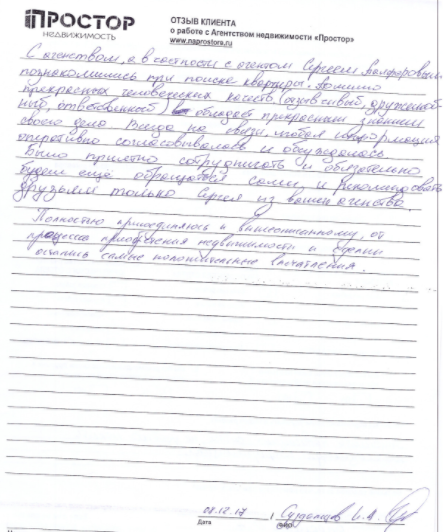 ПРОСТОР
НЕДВИЖИМОСТЬ
ОТЗЫВ КЛИЕНТА
о работе с Агентством недвижимости «Простор»
www.naprostore.ru
С агенством, а в частности с агентом Сергеем
познакомились при поиске квартиры. Помимо
прекрасных человеческих качеств (отзывчивый, дружелюб-
ный, ответственный) обладает прекрасным знанием
своего дела. Всегда на связи, любая информация
оперативно согласовывалась и обсуждалась.
Было приятно сотрудничать и обязательно
будем ещё обращаться сами и рекомендовать
друзьям только Сергея из вашего агенства.
Полностью присоединяюсь к вышесписанному, от
процесса приобретения недвижимости и сделки
остались самые положительные впечатления.
08.12.17
Дата
ФИО